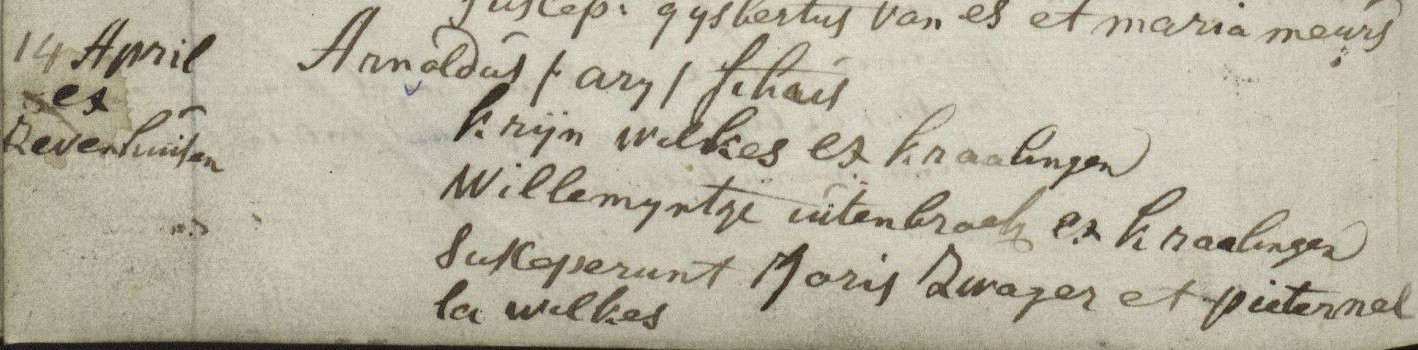 suscep: gysbertus van es et maria meurs
14 April
ex
Zevenhuisen
Arnoldus / ary / filius
krijn wilkes ex kraalingen
Willemyntge uitenbroek ex kraalingen
Susceperunt Joris Zwager et pieternel
la wilkes